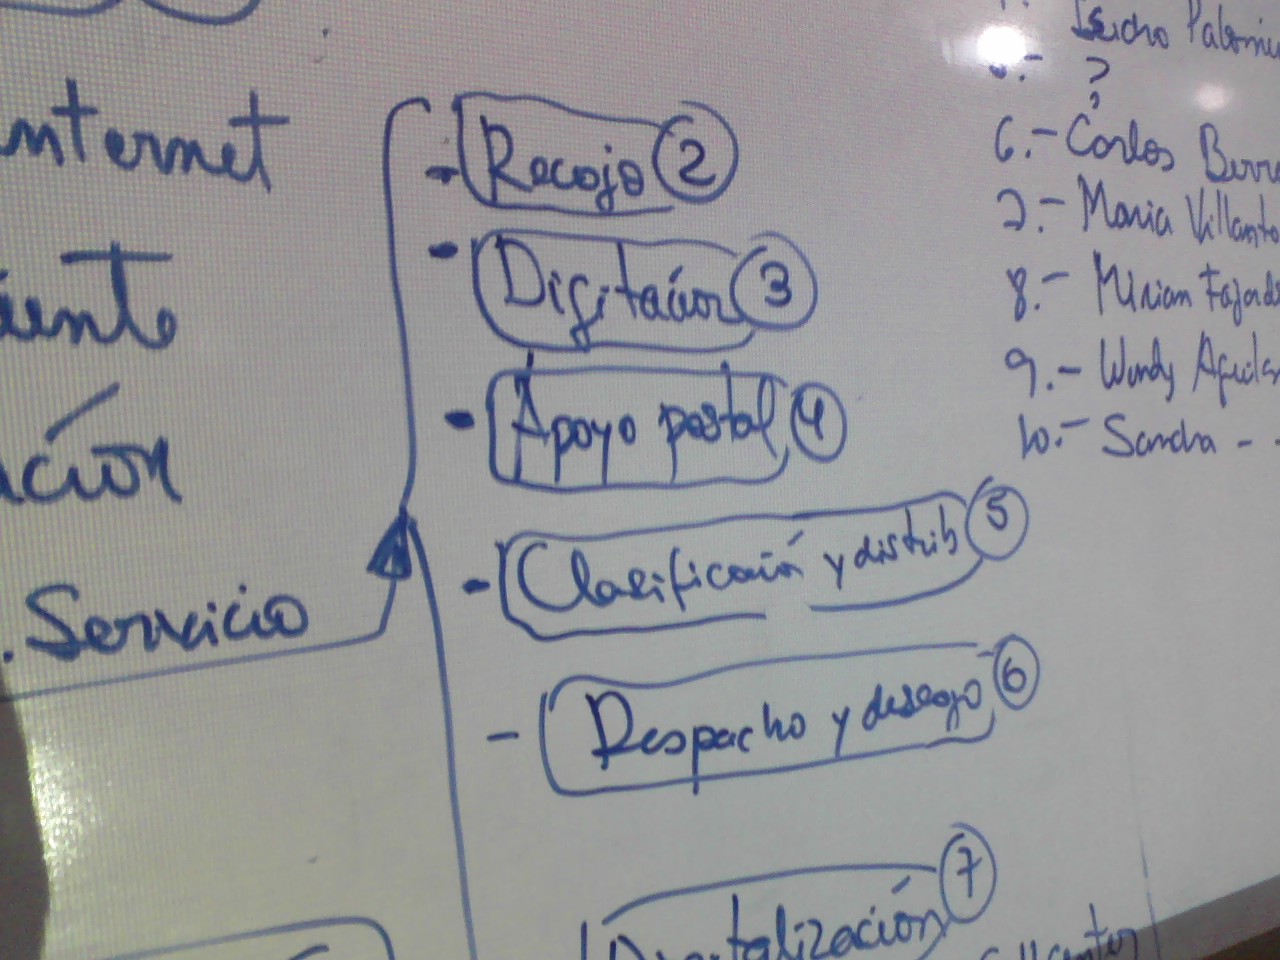 nternet
iento
ación
. Servicio
- Recojo 2
- Digitación 3
- Apoyo postal 4
- Clasificación y distrib 5
- Despacho y 6
Digitalización 7
Palomin
?
6.- Carlos Berr
7.- Maria Villanto
8.- Mirian Fajard
9.- Wendy Aguilar
10.- Sandra - -